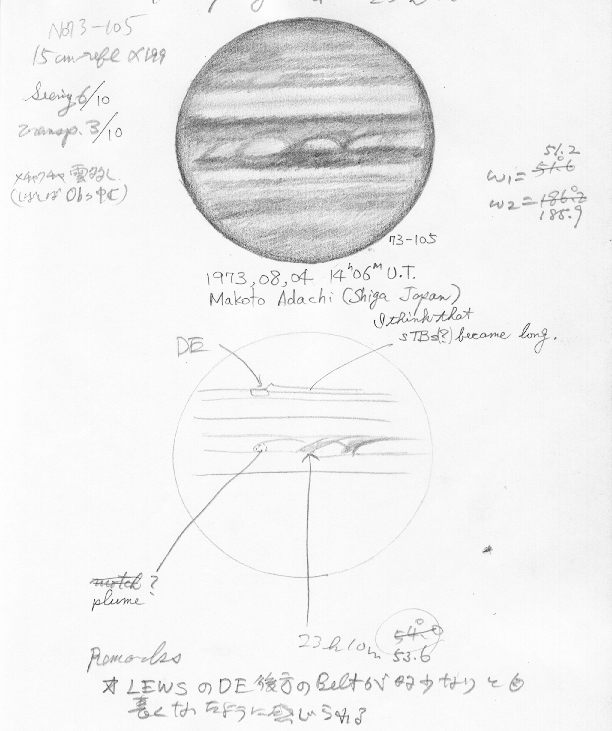 No73-105
15cm refl ×199
Seeing 6/10
transp. 3/10
(ほぼ Obs中に)
ω1= 51.6 51.2
ω2= 186.2 185.9
73-105
1973,08,04 14h06m U.T.
Makoto Adachi (Shiga Japan)
I think that
STBs(?) became long.
DE
notch ?
plume
23h10m 54.0 53.6
Remarks
LEWSのDE後方のBeltが